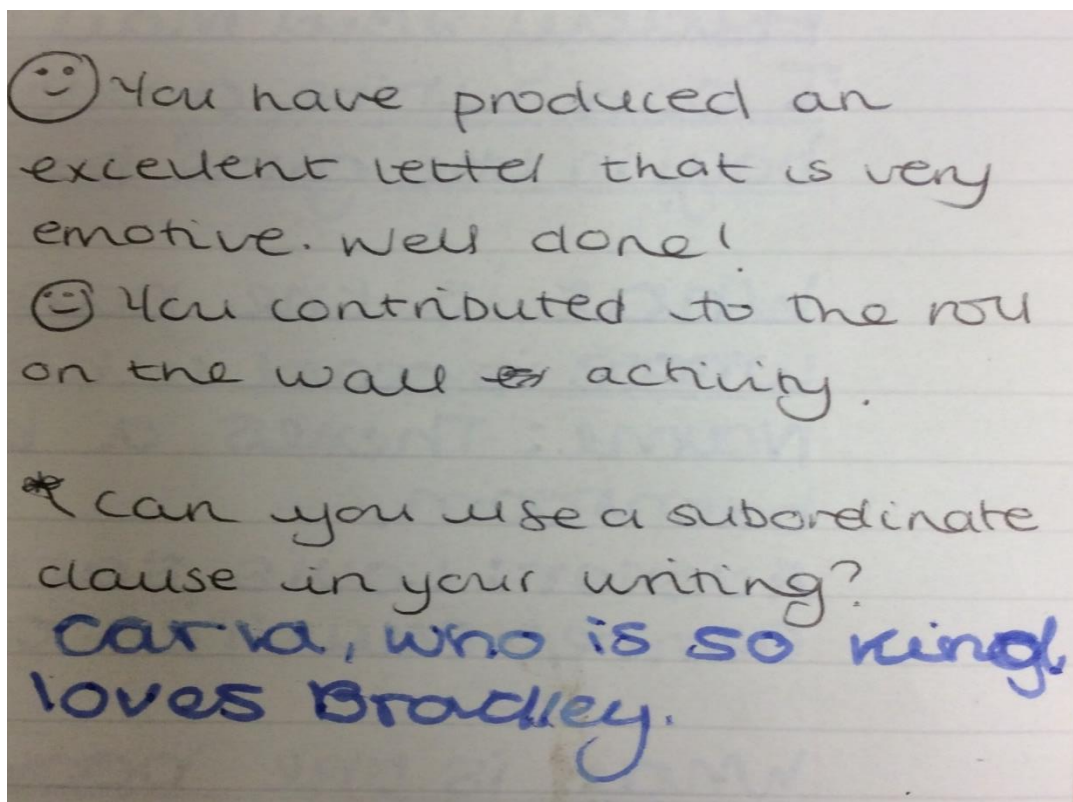 You have produced an
excellent letter that is very
emotive. Well done!
You contributed to the roll
on the wall activity.
* Can you use a subordinate
clause in your writing?
Carla, who is so kind,
loves Bradley.